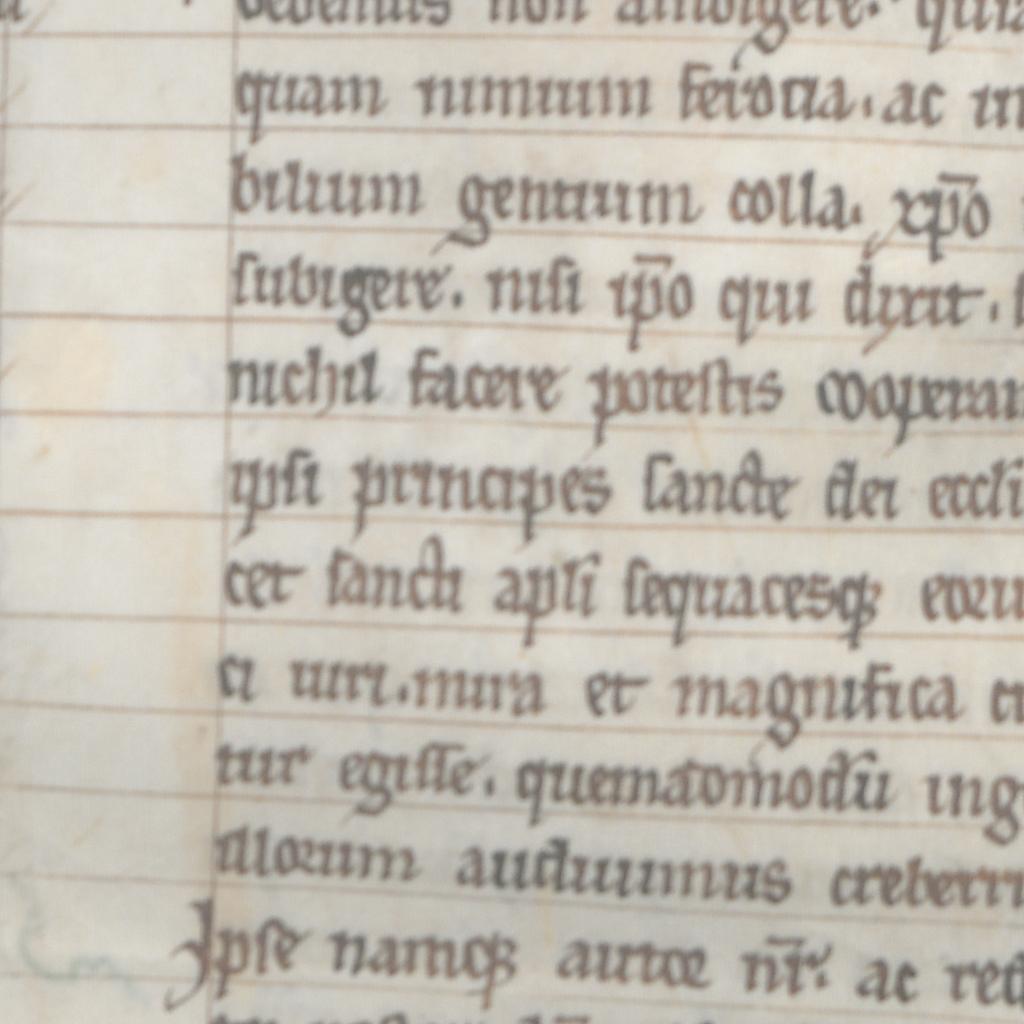 debemus non ambigere. quia
quam nimium ferocia. ac in
bilium gentium colla. xp̄o
subigere. nisi ip̄o qui dixit.
nichil facere potestis cooperan
ipsi principes sancte dei eccli
cet sancti apl̄i sequacesq; eoru
ci uiri. mira et magnifica
tur egisse. quemadmodū ing
illorum audiuimus creberri
Ipse namq; autor nr̄. ac red